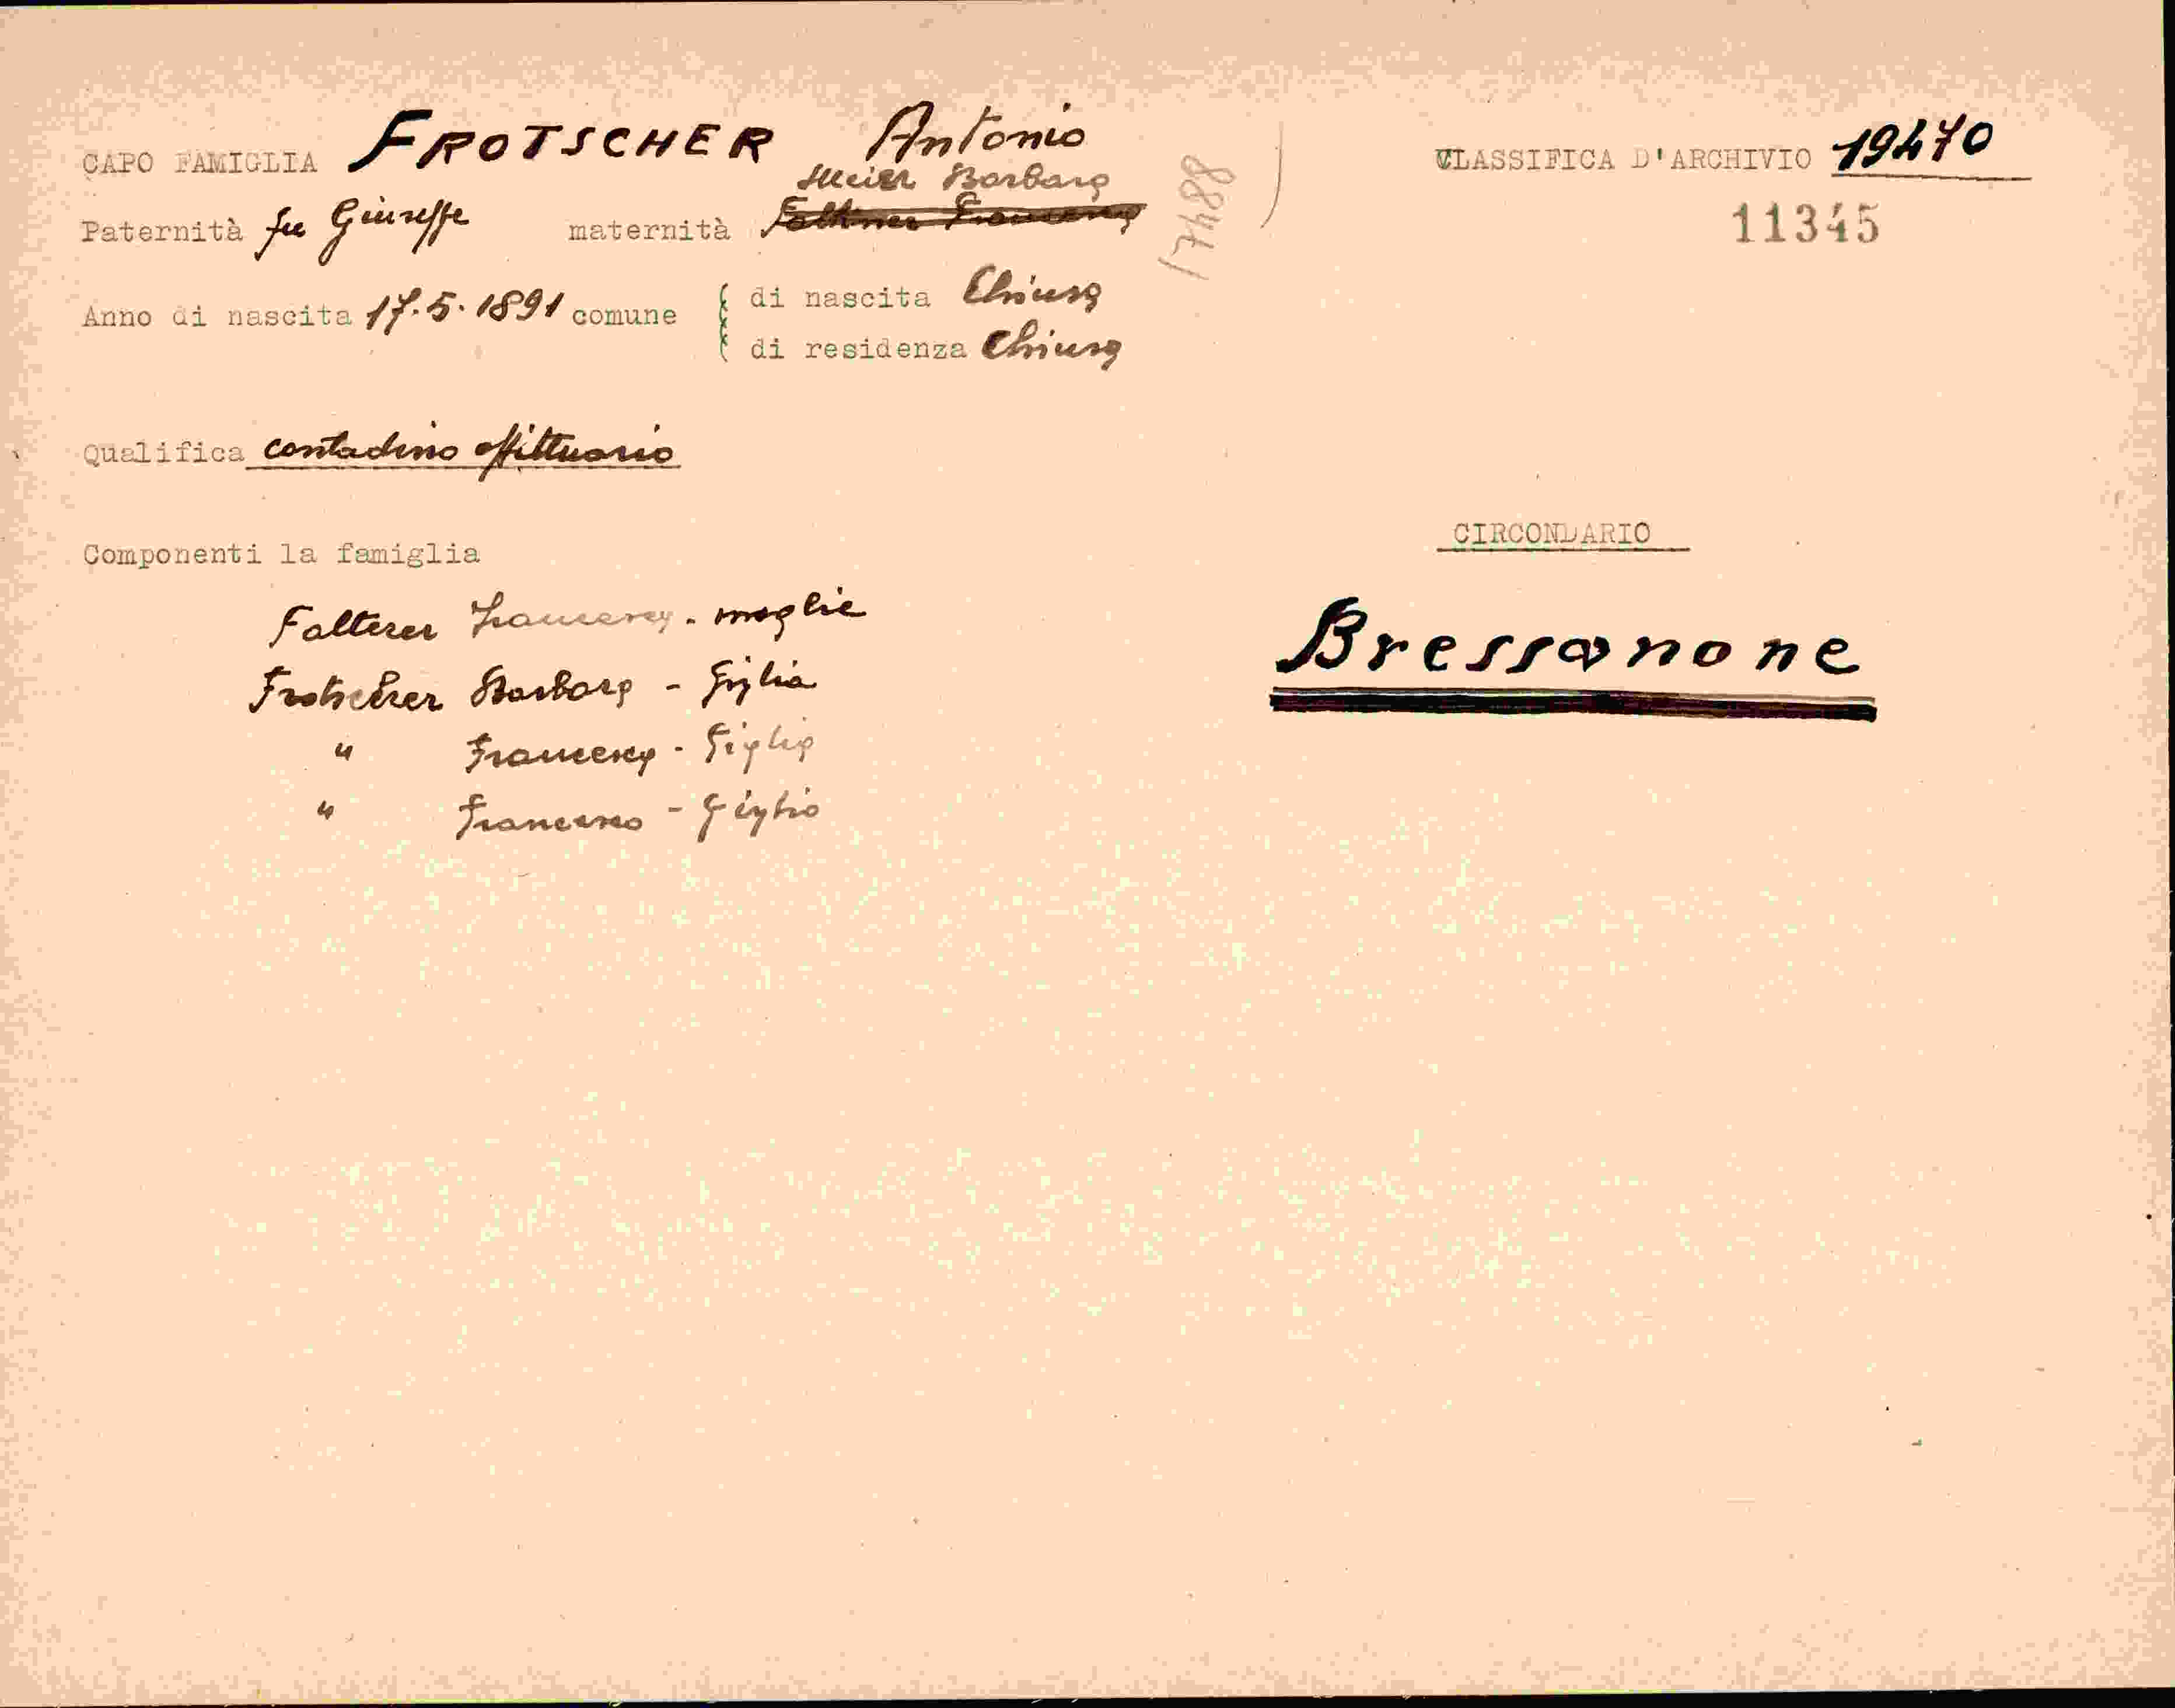 CAPO FAMIGLIA FROTSCHER Antonio
CLASSIFICA D'ARCHIVIO 19470
Meier Barbara
Paternità fu Giuseppe maternità
11345
17488
Anno di nascita 17.5.1891 comune { di nascita Chiusa
di residenza Chiusa
Qualifica contadino affittuario
CIRCONDARIO
Componenti la famiglia
Bressanone
Falterer Francesca - moglie
Frotscher Barbara - figlia
" Francesca - figlia
" Francesco - figlio